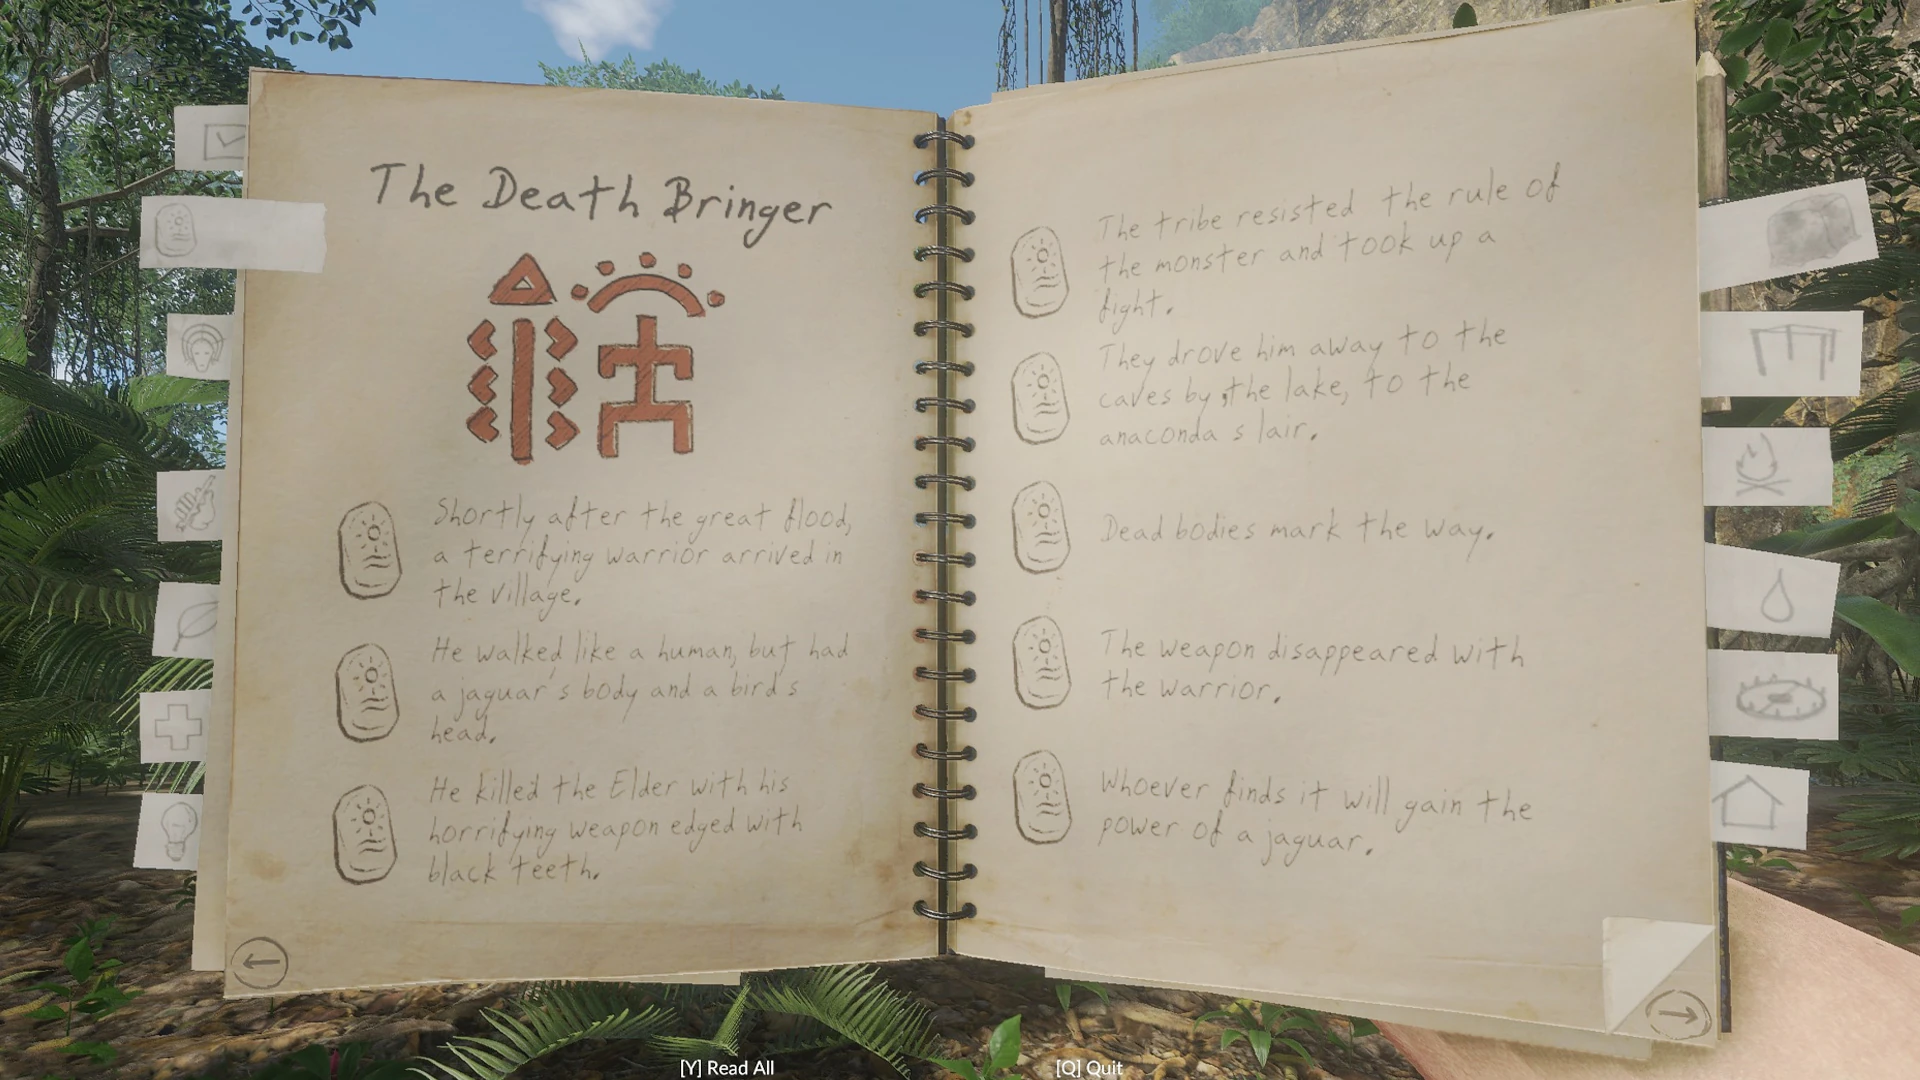 The Death Bringer
Shortly after the great flood,
a terrifying warrior arrived in
the village.
He walked like a human, but had
a jaguar's body and a bird s
head.
He killed the Elder with his
horrifying weapon edged with
black teeth.
The tribe resisted the rule of
the monster and took up a
fight.
They drove him away to the
caves by the lake, to the
anaconda s lair.
Dead bodies mark the way.
The weapon disappeared with
the warrior.
Whoever finds it will gain the
power of a jaguar.
[Y] Read All
[Q] Quit